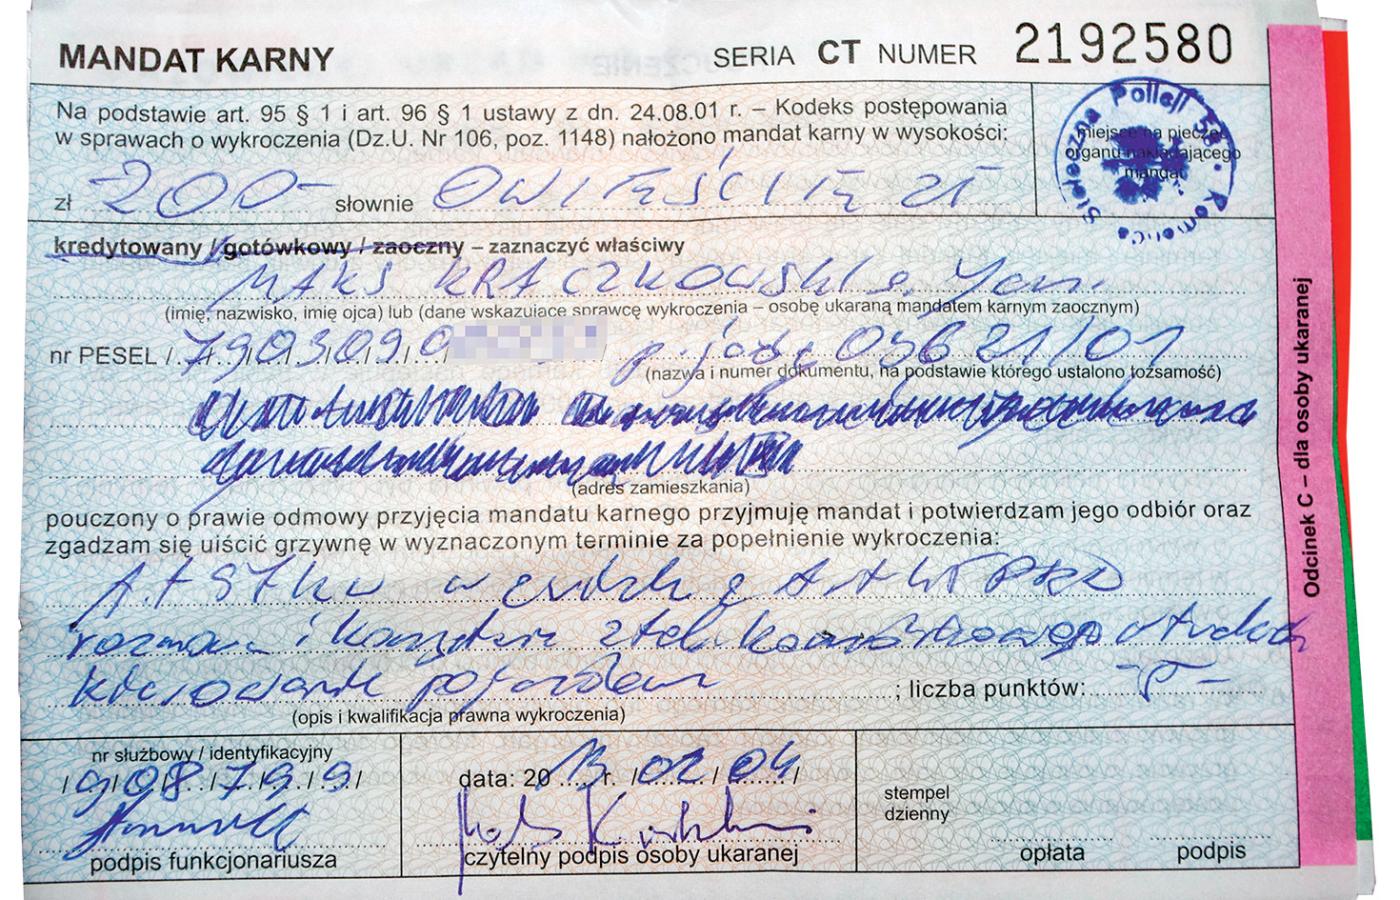 MANDAT KARNY SERIA CT NUMER 2192580
Na podstawie art. 95 § 1 i art. 96 § 1 ustawy z dn. 24.08.01 r. – Kodeks postępowania
w sprawach o wykroczenia (Dz.U. Nr 106, poz. 1148) nałożono mandat karny w wysokości:
miejsce na pieczęć
organu nakładającego
mandat
zł 200- słownie DWIEŚCIE zł
kredytowany / gotówkowy / zaoczny – zaznaczyć właściwy
MAKS KRACZKOWSKI
(imię, nazwisko, imię ojca) lub (dane wskazujące sprawcę wykroczenia – osobę ukaraną mandatem karnym zaocznym)
nr PESEL /7/9/0/3/0/9/0
(nazwa i numer dokumentu, na podstawie którego ustalono tożsamość)
(adres zamieszkania)
pouczony o prawie odmowy przyjęcia mandatu karnego przyjmuję mandat i potwierdzam jego odbiór oraz
zgadzam się uiścić grzywnę w wyznaczonym terminie za popełnienie wykroczenia:
rozmowa i korzystanie z tel. komórkowego
kierowanie pojazdem ; liczba punktów: 5-
(opis i kwalifikacja prawna wykroczenia)
nr służbowy / identyfikacyjny
/9/0/8/7/9/9/
podpis funkcjonariusza
data: 2013 r. /02/04/
czytelny podpis osoby ukaranej
stempel
dzienny
opłata podpis
Odcinek C – dla osoby ukaranej